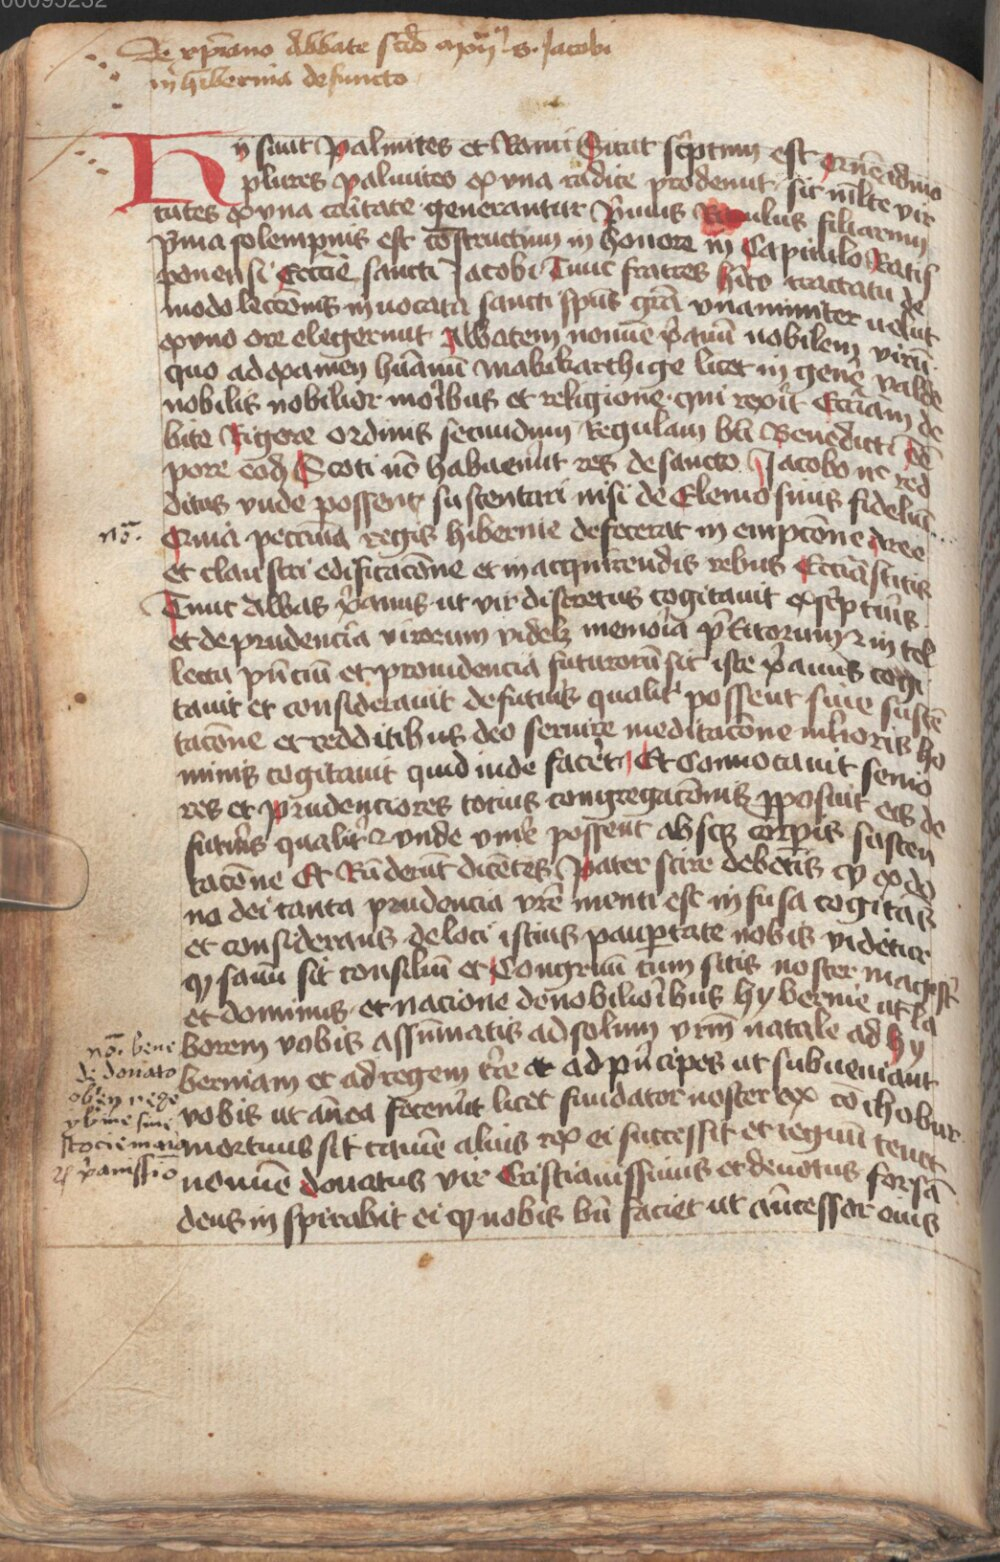 00095232
De xp̄iano Abbate scd̄o s. Jacobi
in hibernia defuncto
Hij sunt palmites et Rami Sicut sc̄ptum est
plures palmites ex vna radice prodeunt sic mlte vir
tutes ex vna caritate generantur Primus Ramulus filiarum
p̄ma solempnis est cōstructum in honore in Capitulo Ratis
ponensi Eccīe sancti Jacobi Tunc fratres hito tractatu de
modo lectionis inuocata sancti sp̄us grā vnanimiter uelut
ex vno ore elegerunt Abbatem nomīe xp̄ianū nobilem virū
quo ad examen hūanū makikarthige licet in genē valde
nobilis nobilior moribus et religione qui rexit Ecciam de
bite Rigore ordinis secundum Regulam bti Benedicti Tē
pore eod Scoti nō habuerunt res de sancto Jacobo nc red
ditus vnde possent sustentari nisi de Elemosinis fidelium
nō.
Quia peccunia regis hibernie defecerat in empcōne aree
et claustri edificacōne et in acquirendis rebus Ecciasticis
Tunc Abbas xp̄ianus ut vir discretus cogitauit ex sc̄pturis
et de prudencia virorum videlz memoria p̄teritorum et intel
lectu pn̄ciū et prouidencia futurorū sic iste xp̄ianus cogi
tauit et considerauit de futuris qualit possent sine sustē
tacōne et redditibus deo seruire meditacōne ho
minis cogitauit quid inde facēt Et Conuocauit senio
res et prudenciores totius congregacōnis pposuit eis de
futuris qualit et vnde viuē possent absqz corpis susten
tacōne Et Rn̄derūt dicētes Pater scire debetis qd ex do
no dei tanta prudencia vrē menti est infusa cogitās
et considerans de loci istius paupertate nobis videtur
qd sanū sit consiliū et Congruū cum sitis noster magist
et dominus et nacione de nobilioribus hybernie ut la
borem vobis assūmatis ad solum vrm̄ natale ad hy
berniam et ad regem tr̄re et ad pn̄cipes ut subueniant
vobis ut an̄ea fecerūt licet fundator noster rex cōchobur
mortuus sit tamē alius rex ei successit et regnū tenet
nomīe donatus vir Cristianissimus et deuotus forsā
deus inspirabit ei qd nobis bn̄ faciet ut ān̄cessor euis
nō. bene
de donato
obren rege
ybernie siue
stocie maio
xp̄ianissīo